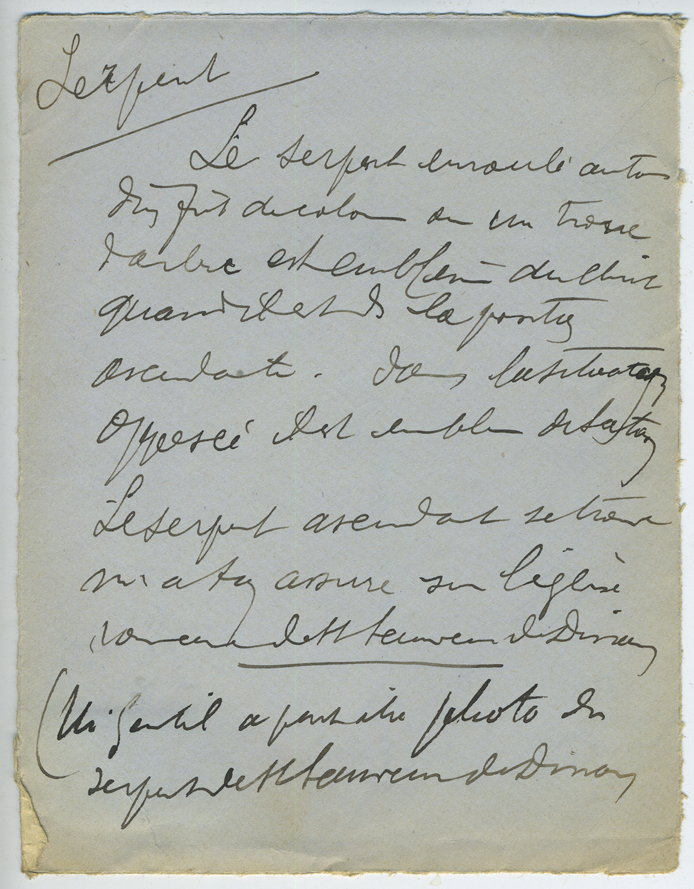 Serpent
Le serpent enroulé autour
d'un fût de colonne ou un tronc
d'arbre est emblème du Christ
quand il est ds la position
ascendante. dans la situation
opposée il est emblème de Satan
Le serpent ascendant se trouve
m'a-t-on assuré sur l'église
romane de St Sauveur de Dinan
(M. Gentil a peut-être photo du
serpent de St Sauveur de Dinan